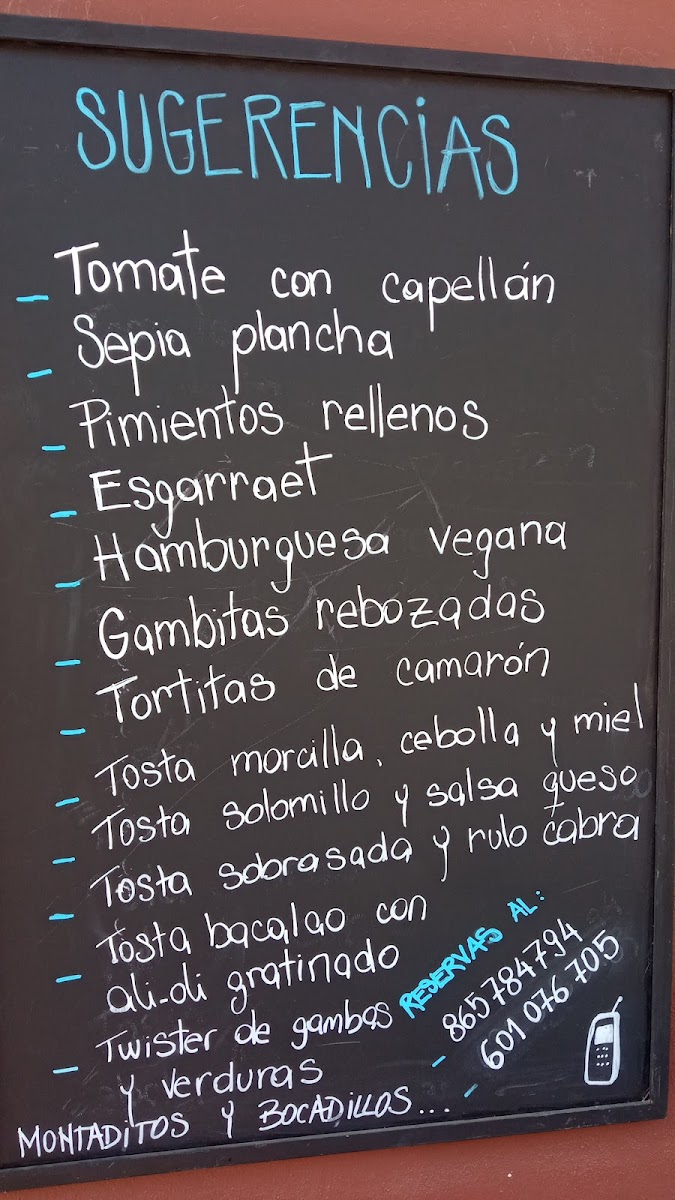 SUGERENCIAS
- Tomate con capellán
- Sepia plancha
- Pimientos rellenos
- Esgarraet
- Hamburguesa vegana
- Gambitas rebozadas
- Tortitas de camarón
- Tosta morcilla, cebolla y miel
- Tosta solomillo y salsa queso
- Tosta sobrasada y rulo cabra
- Tosta bacalao con
ali-oli gratinado
- Twister de gambas
y verduras
MONTADITOS y BOCADILLOS...
RESERVAS AL:
- 865784794
- 601 076 705